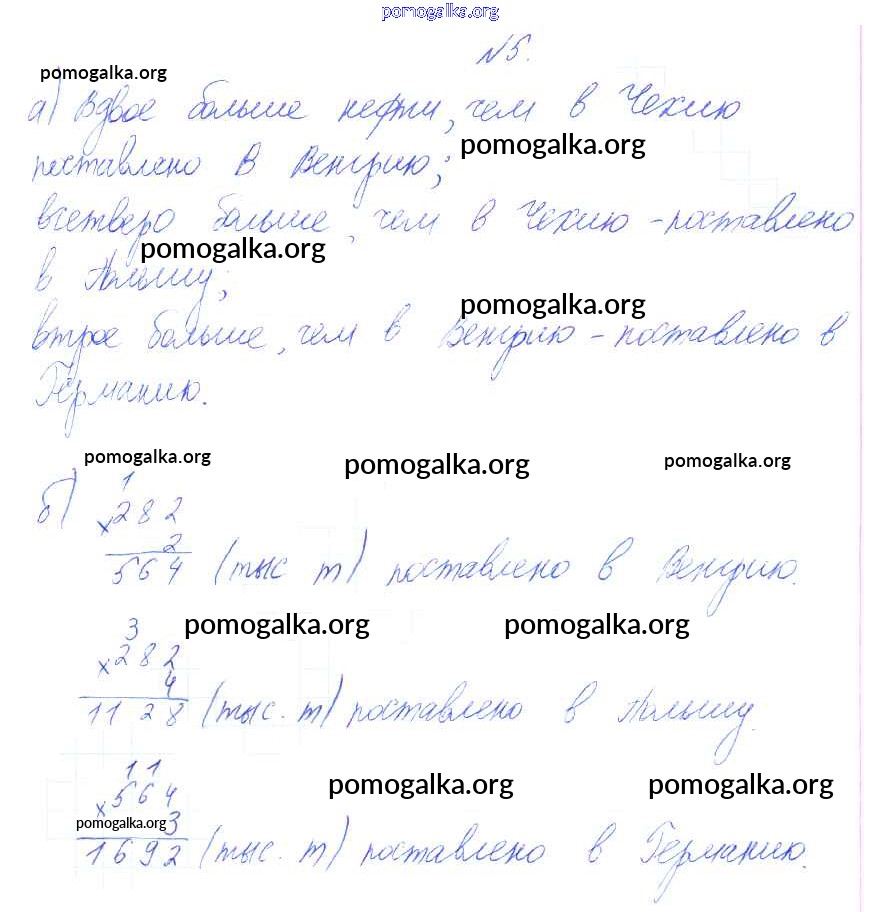 pomogalka.org
№5.
pomogalka.org
а) Вдвое больше нефти, чем в Чехию
pomogalka.org
поставлено в Венгрию;
вчетверо больше, чем в Чехию - поставлено
pomogalka.org
в Польшу;
pomogalka.org
втрое больше, чем в Венгрию - поставлено в
Германию.
pomogalka.org pomogalka.org pomogalka.org
б) 1
×282
2
564 (тыс т) поставлено в Венгрию.
pomogalka.org pomogalka.org
3
×282
4
1128 (тыс. т) поставлено в Польшу.
11
pomogalka.org pomogalka.org
×564
pomogalka.org 3
1692 (тыс. т) поставлено в Германию.